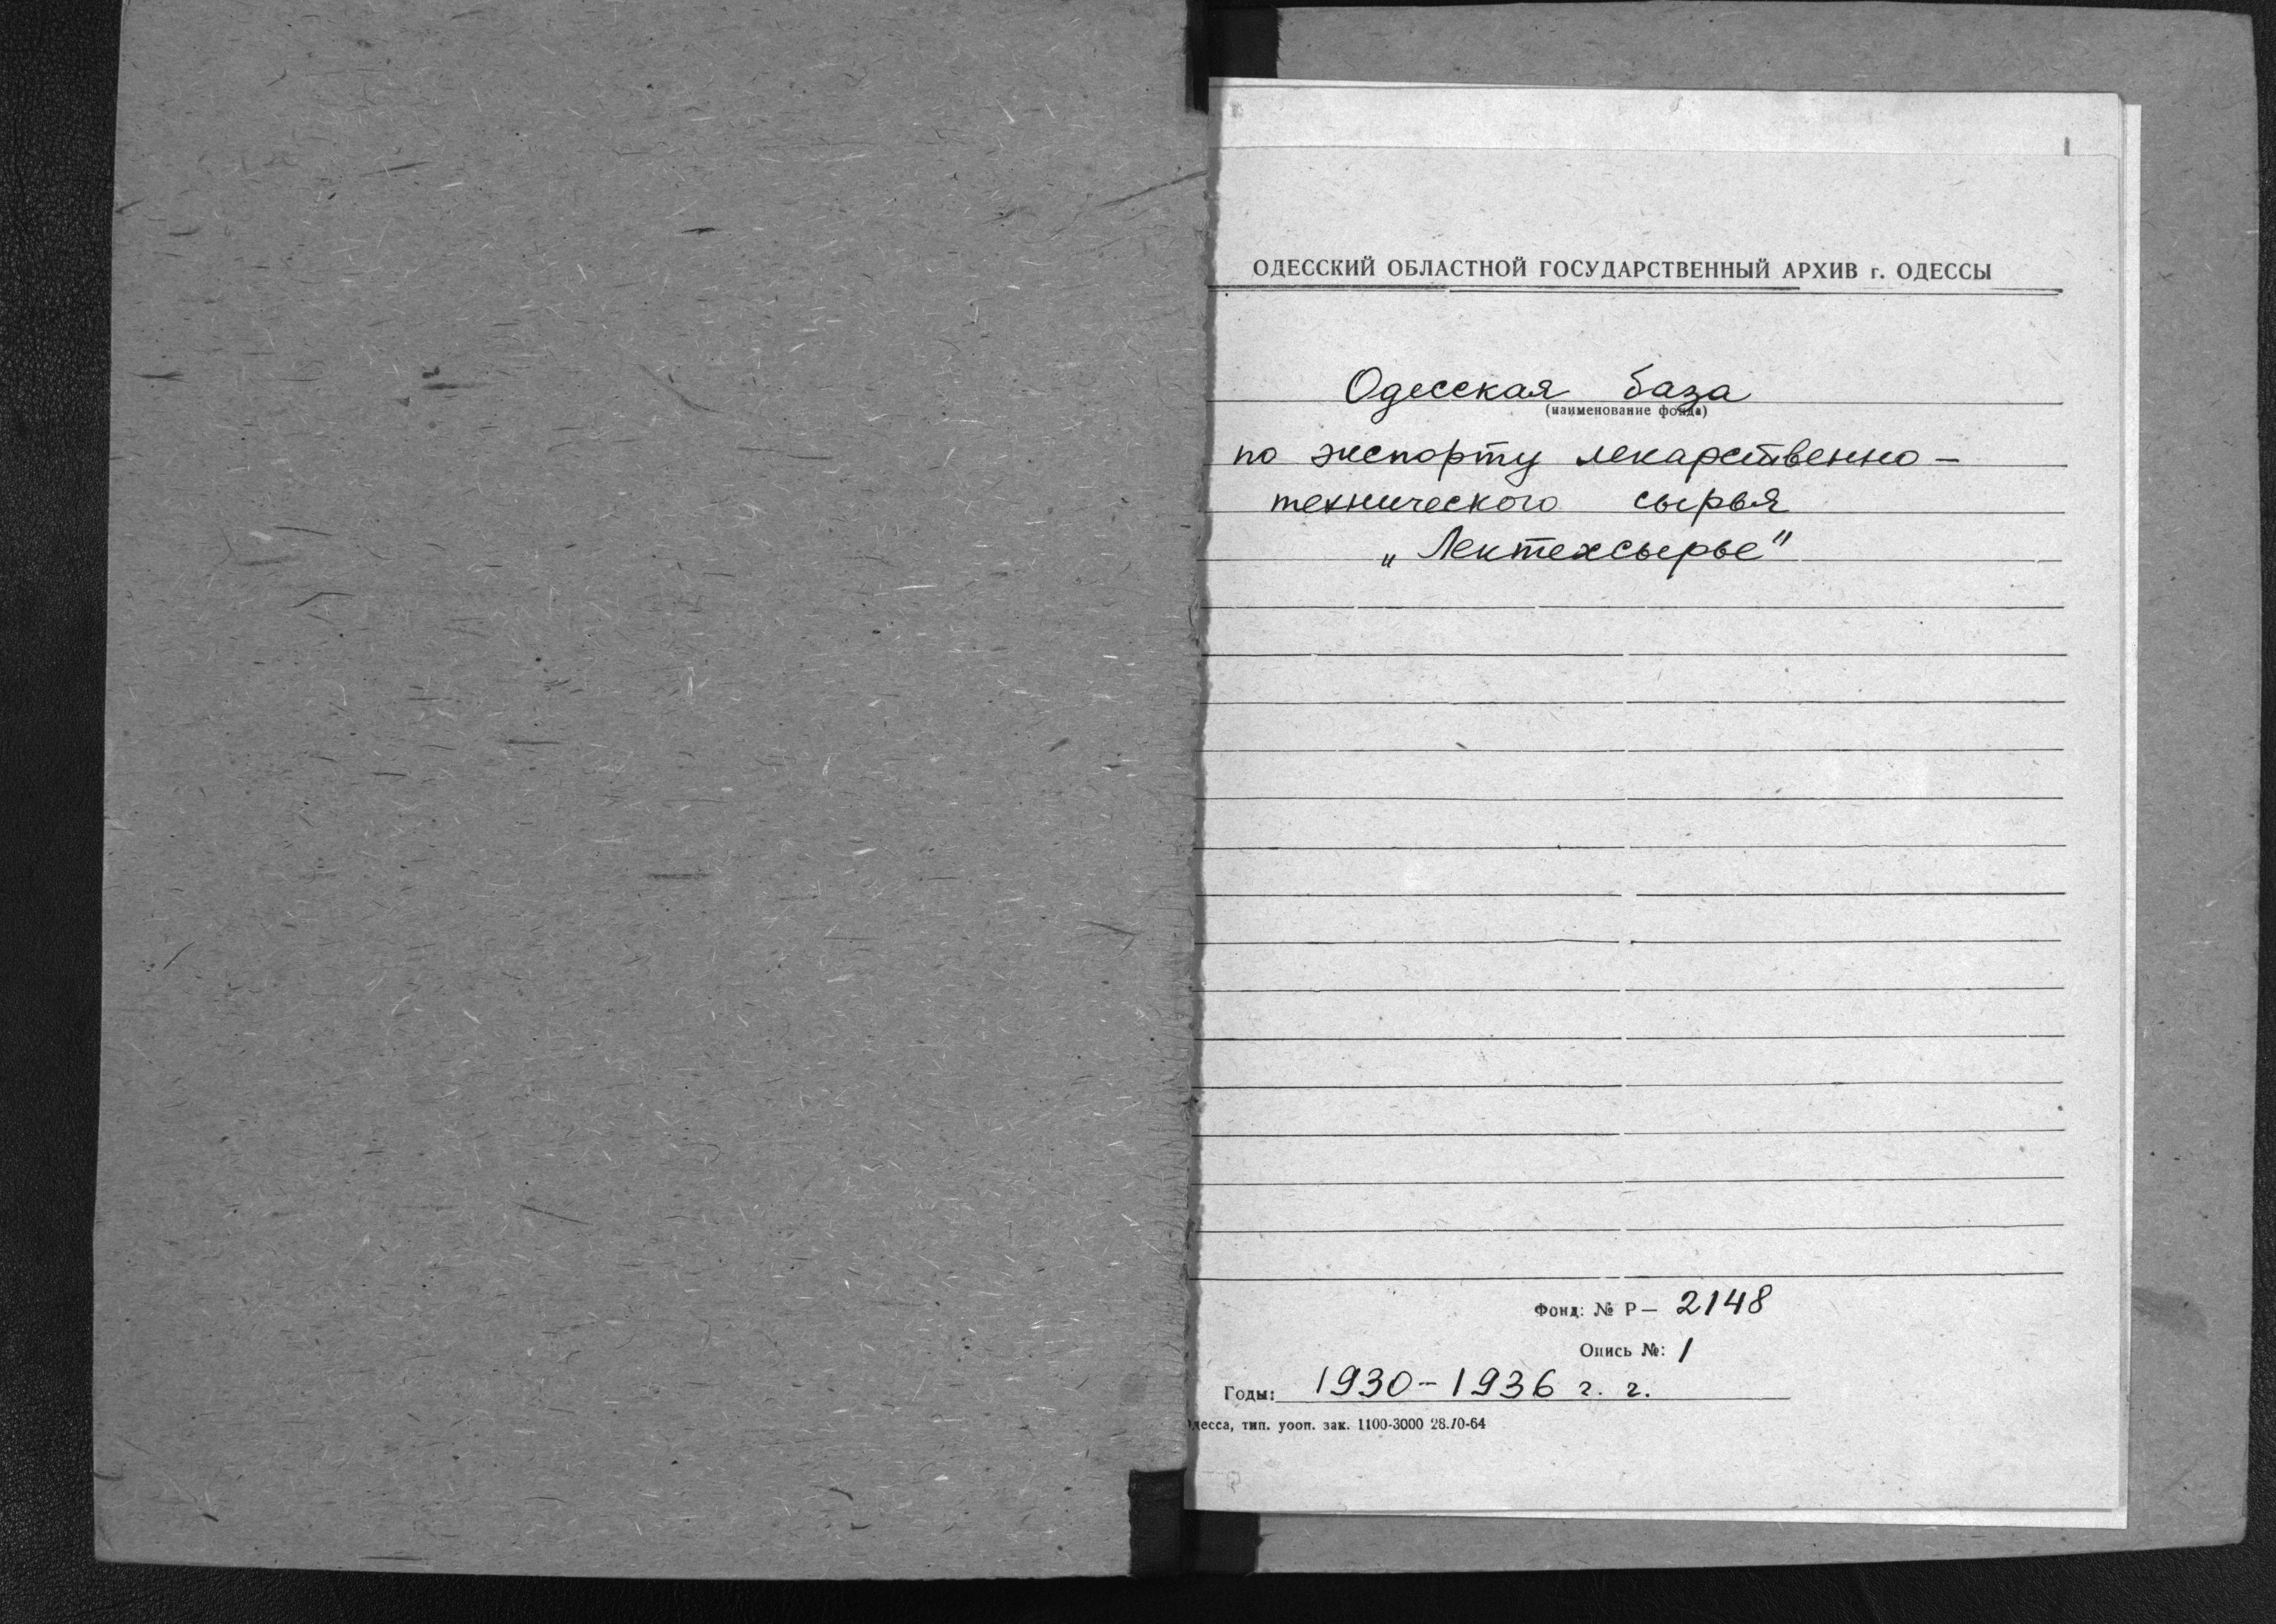 ОДЕССКИЙ ОБЛАСТНОЙ ГОСУДАРСТВЕННЫЙ АРХИВ г. ОДЕССЫ
Одесская база
(наименование фонда)
по экспорту лекарственно-
технического сырья
„Лектехсырье"
Фонд: № Р — 2148
Опись №: 1
Годы: 1930-1936 г. г.
десса, тип. уооп. зак. 1100-3000 28.10-64